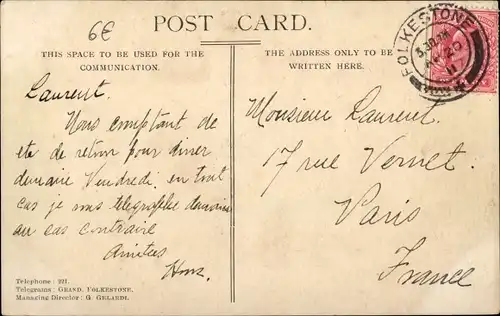 6€
POST CARD.
THIS SPACE TO BE USED FOR THE
COMMUNICATION.
THE ADDRESS ONLY TO BE
WRITTEN HERE.
FOLKESTONE
11
Laurent.
Nous comptant de
ete de retour pour diner
demain Vendredi. en tout
cas je vous telegraphie demain
au cas contraire
Amities
Monsieur Laurent.
17 rue Vernet.
Paris
France
Telephone : 221.
Telegrams : GRAND, FOLKESTONE.
Managing Director : G. GELARDI.